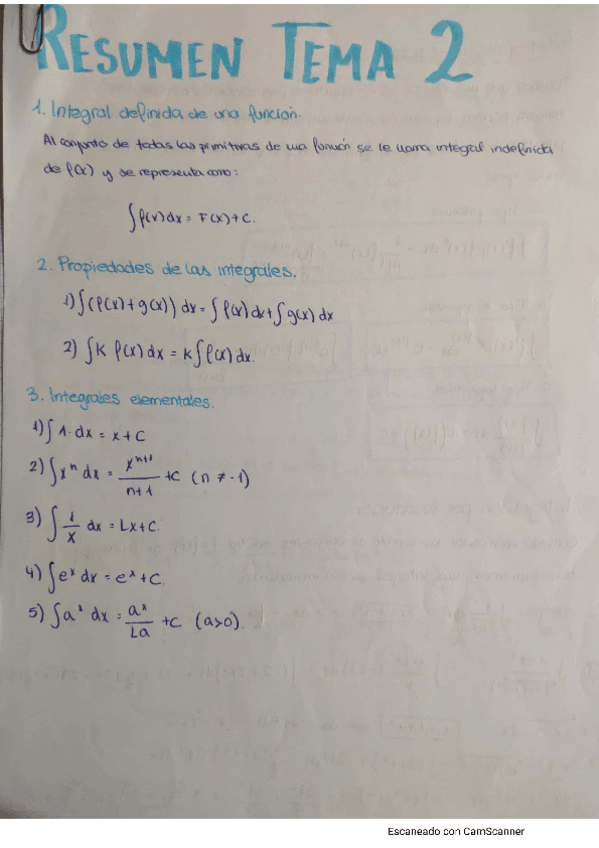 RESUMEN TEMA 2
1. Integral definida de una función.
Al conjunto de todas las primitivas de una función se le llama integral indefinida
de f(x) y se representa como:
∫f(x)dx = F(x)+C.
2. Propiedades de las integrales.
1) ∫(f(x)+g(x)) dx = ∫f(x) dx + ∫g(x) dx
2) ∫K f(x) dx = K∫f(x) dx.
3. Integrales elementales.
1) ∫1·dx = x+C
2) ∫xⁿ dx = xⁿ⁺¹/n+1 +C (n ≠ -1)
3) ∫1/x dx = Lx+C.
4) ∫eˣ dx = eˣ+C.
5) ∫aˣ dx = aˣ/La +C (a>0).
Escaneado con CamScanner